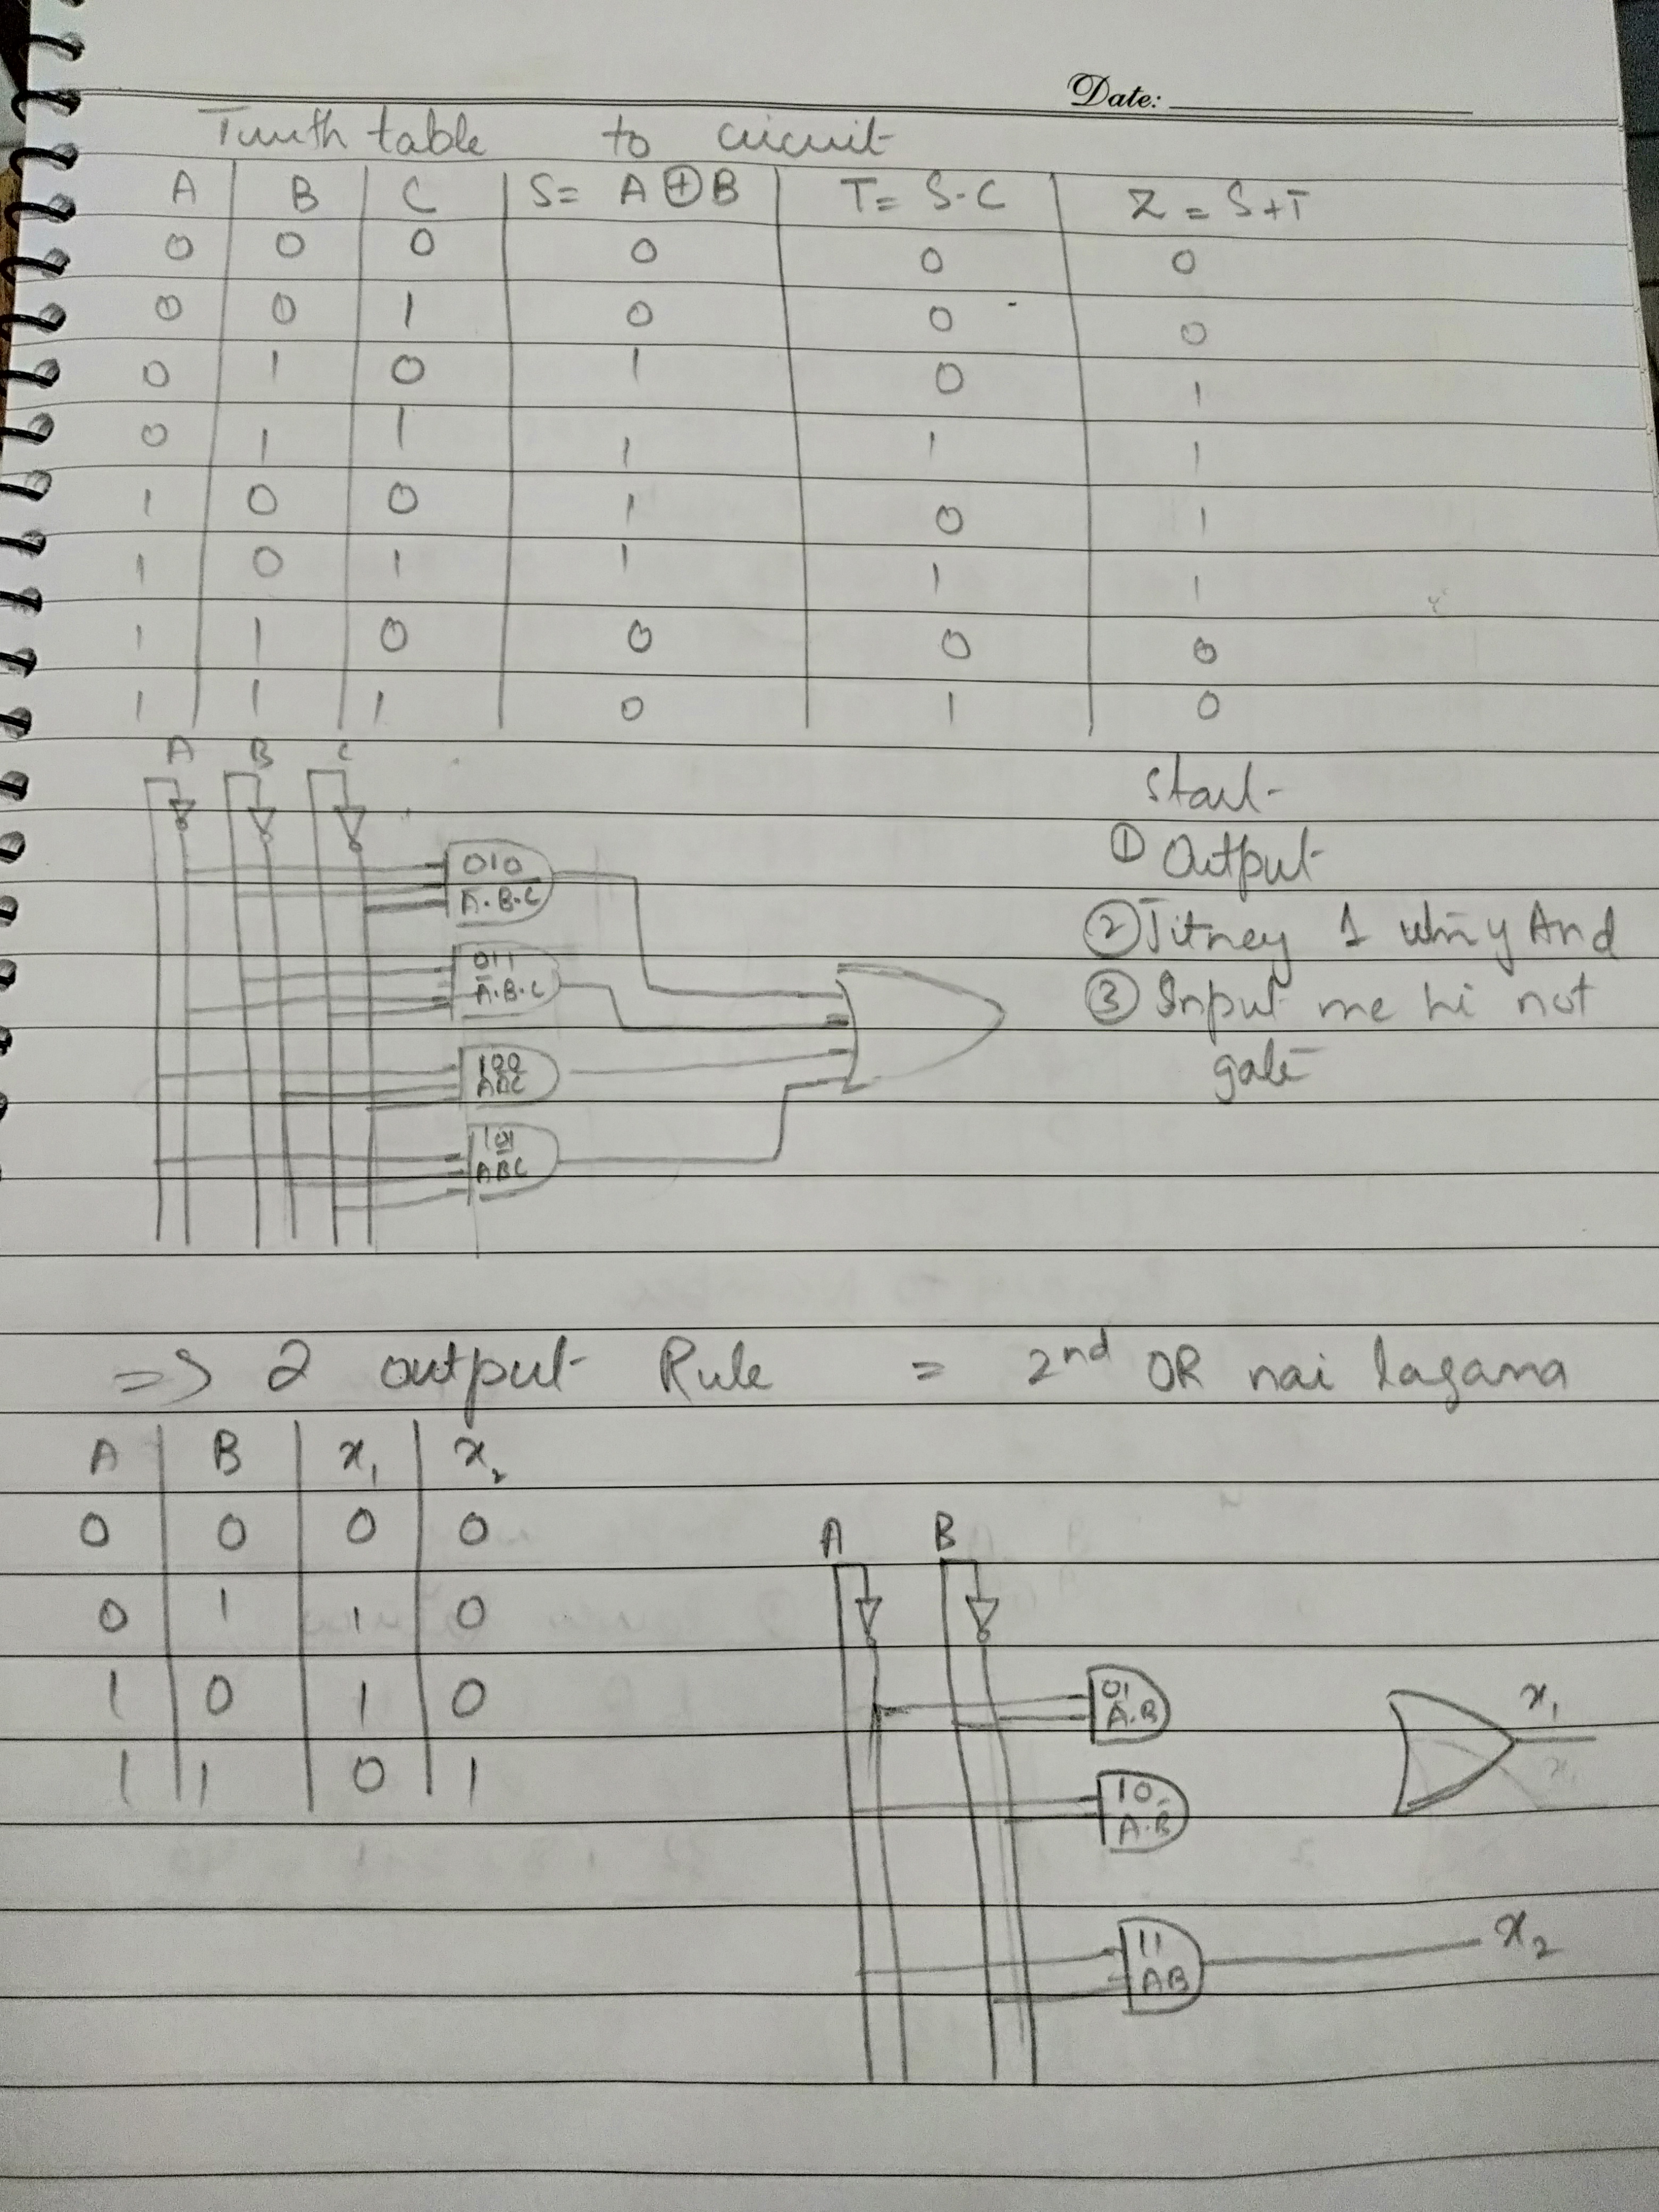 Date:
Truth table to circuit
A B C S= A⊕B T= S·C Z = S+T
0 0 0 0 0 0
0 0 1 0 0 0
0 1 0 1 0 1
0 1 1 1 1 1
1 0 0 1 0 1
1 0 1 1 1 1
1 1 0 0 0 0
1 1 1 0 1 0
A B C
010
A·B·C
011
A·B·C
100
ABC
101
ABC
Start
① Output
② Jitney 1 And
③ Input me hi not
gate
=> 2 output Rule = 2nd OR nai lagana
A B x₁ x₂
0 0 0 0
0 1 1 0
1 0 1 0
1 1 0 1
A B
01
A·B
x₁
10
A·B
11
AB
x₂